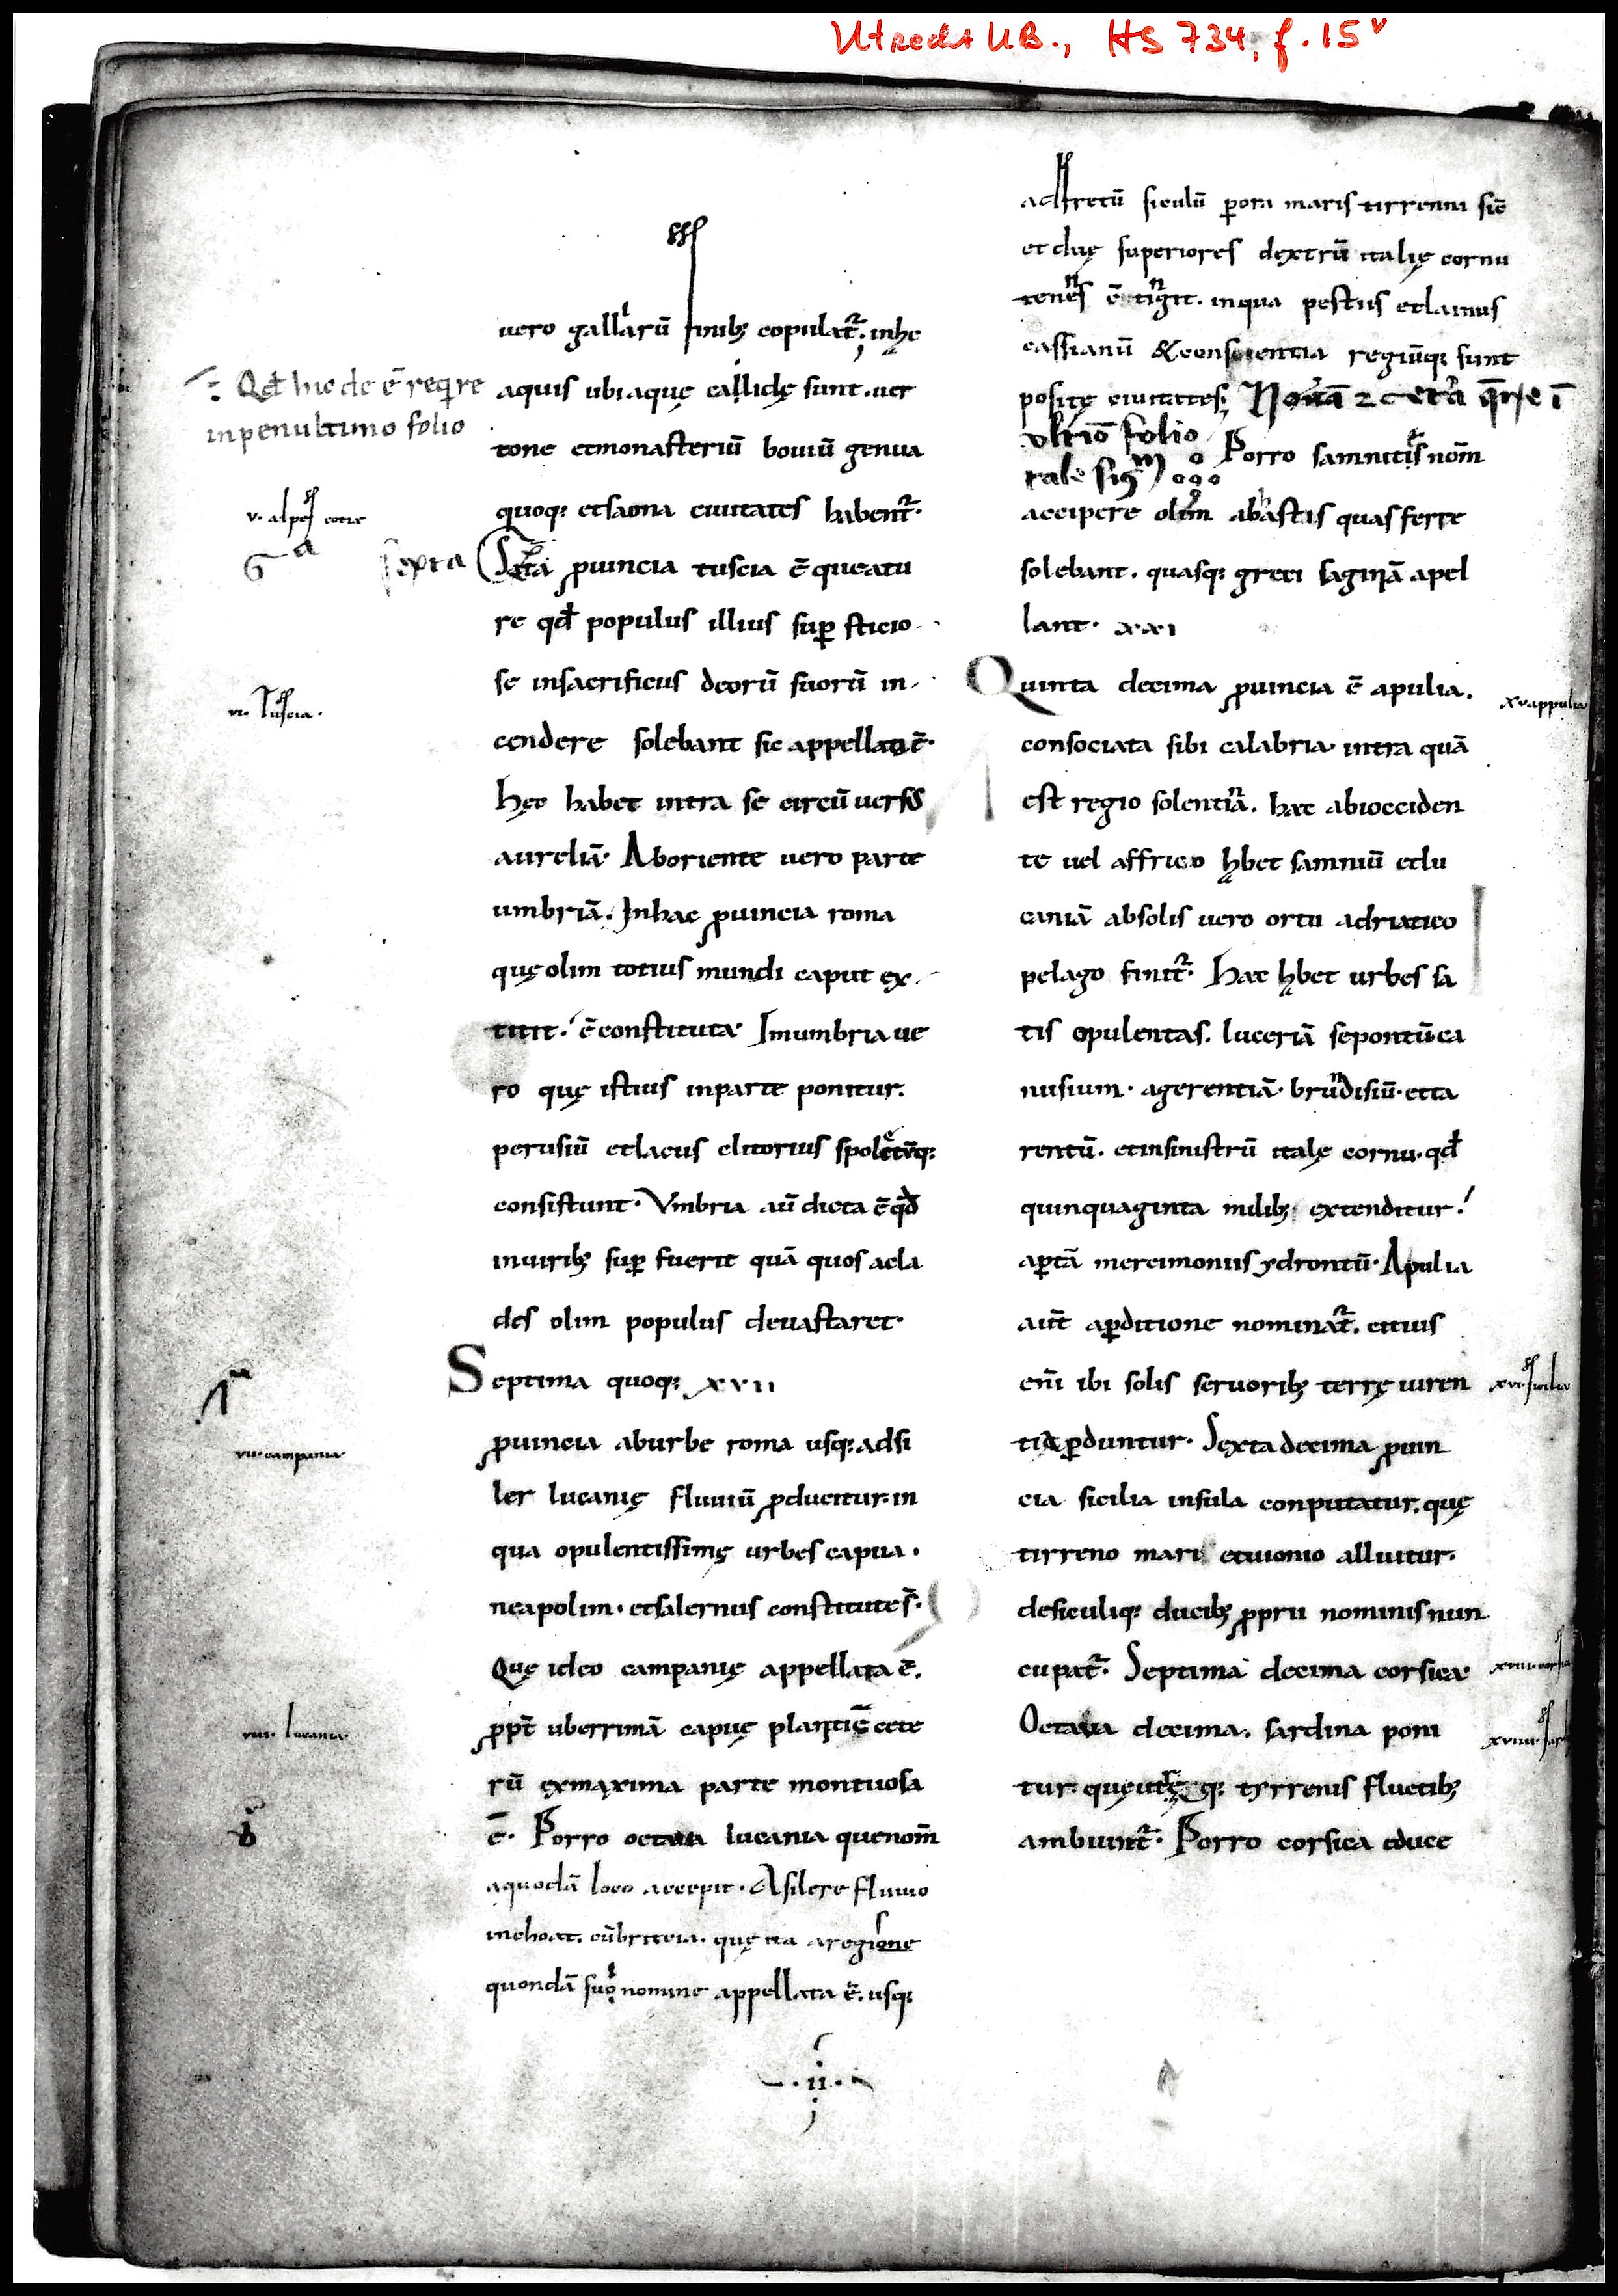 Utrecht UB., HS 734, f. 15v
uero gallarũ finib; copulat᷑. inhc
aquis ubi aquę callidę sunt. ver
tone etmonasteriũ bouiũ genua
quoq; etsaona ciuitates habent᷑.
puincia tuscia ē queatu
re qđ populus illius sup sticio
se insacrificiis deorũ suorũ in
cendere solebant sic appellata ē.
hęc habet intra se circũ uersũ
aureliã. Aboriente uero parte
umbriã. Inhac puincia roma
quę olim totius mundi caput ex
titit. ē constituta. Inumbria ue
ro quę istius inparte ponitur.
perusiũ etlacus clitorius spoletũq;
consistunt. Vmbria aũ dicta ē qđ
inuirib; sup fuerit quã quos acla
des olim populus deuastaret.
Septima quoq; xvii
puincia aburbe roma usq; adsi
ler lucanię fluuiũ pducitur. in
qua opulentissimę urbes capua.
neapolim. etsalernus constitute s̄.
Quę ideo campanię appellata ē.
ppt̄ uberrimã capuę planitiē cete
rũ exmaxima parte montuosa
ē. Porro octaua lucania quenom̄
aquodã loco accepit. Asilere fluuio
inchoat. cũbriteia. quę ita aregione
quondã suo nomine appellata ē. usq;
ii
Qđ hic de ē req̇re
inpenultimo folio
v. alpes cotie
6a
sexta
vi. Tuscia.
vii. campania.
viii. lucania.
8
adfretũ siculũ pora maris tirreni sic̄
et duę superiores dextrũ italię cornu
tenens ctingit. inqua pestus etlainus
cassianũ &consientia regiũq; sunt
positę ciuitates;
vltiõ folio
Porro samnitis nom̄
accipere olim abastis quas ferre
solebant. quasq; greci saginã apel
lant. xxi
Quinta decima puincia ē apulia.
consociata sibi calabria. intra quã
est regio solentina. hac abiocciden
te uel affrico hbet samniũ etlu
caniã absolis uero ortu adriatico
pelago finit᷑. Hac hbet urbes sa
tis opulentas. luceriã sepontũ. ca
nusium. agerentiã. brundisiũ. etta
rentũ. etinsinistrũ italę cornu. qđ
quinquaginta milib; extenditur.
aptã mercimoniis ydrontũ. Apulia
aut̄ apditione nominat᷑. citius
em̄ ibi solis feruorib; terrę uiren
tia pduntur. Sexta decima puin
cia sicilia insula conputatur. quę
tirreno mari etuonio alluitur.
desiculiq; ducib; pprii nominis nun
cupat᷑. Septima decima corsica.
Octaua decima. sardina poni
tur. quę utręq; tyrrenis fluctib;
ambiunt᷑. Porro corsica educe
xv. appulia
xvi. sicilia